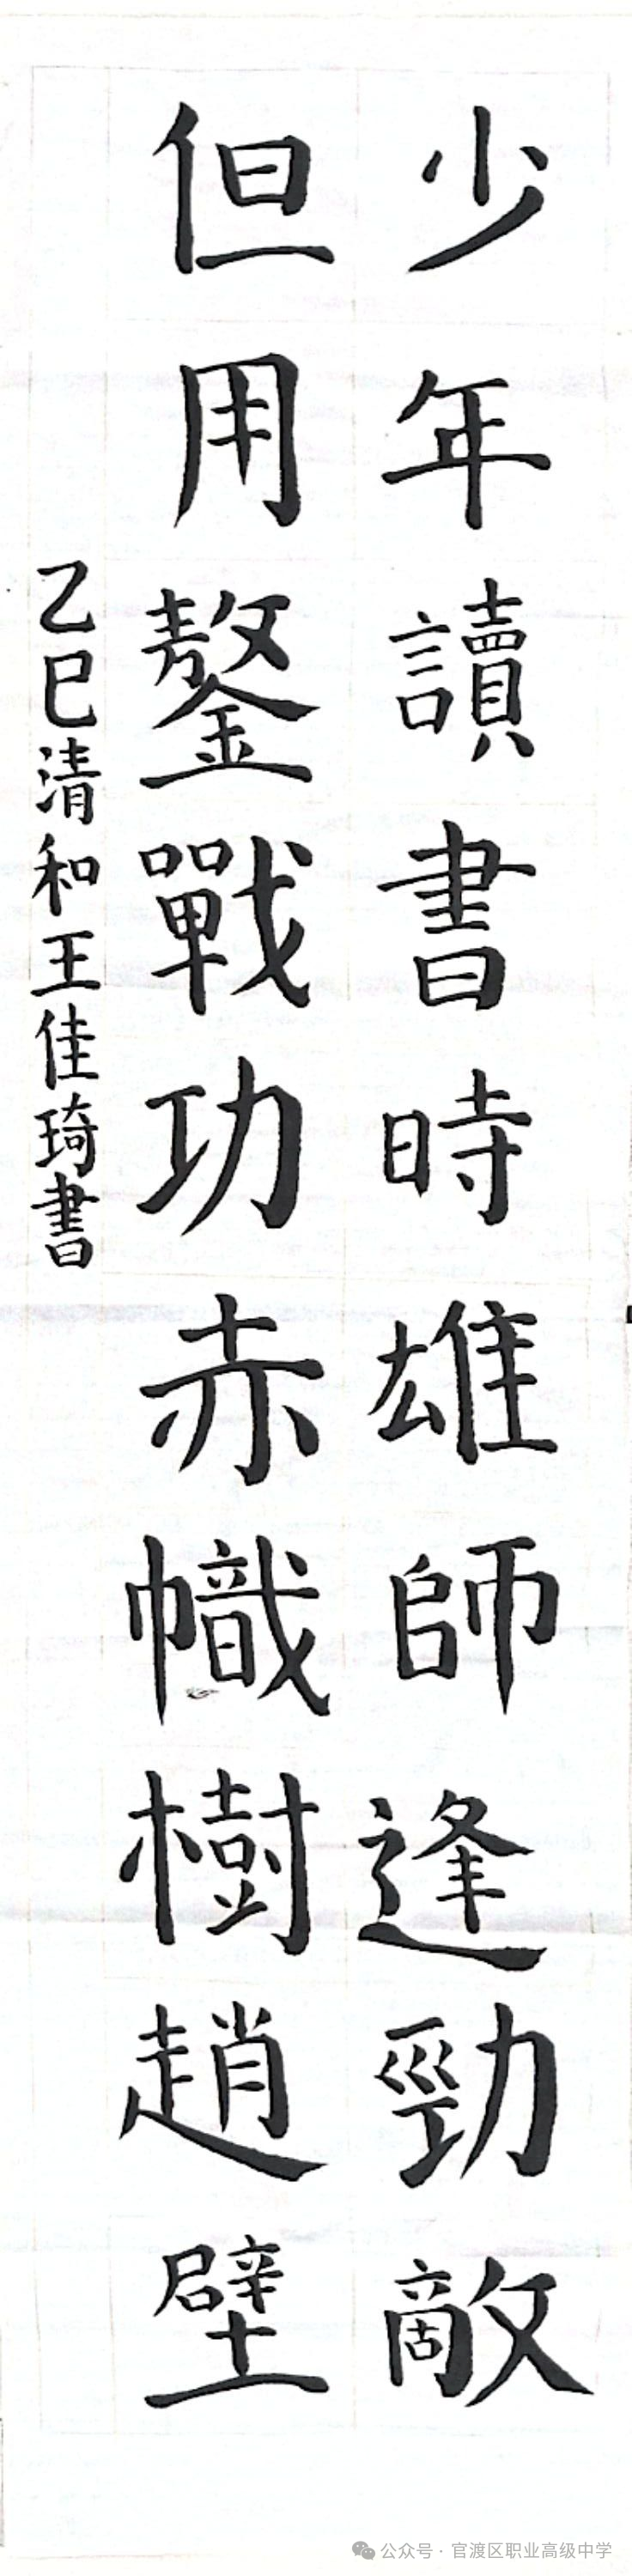 少年讀書時雄師逢勁敵
但用鏊戰功赤幟樹趙壁
乙巳清和王佳琦書
公众号 · 官渡区职业高级中学